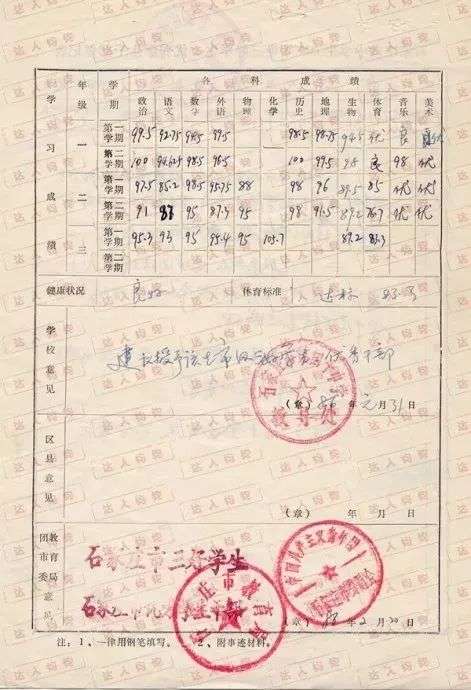 各科成绩
学习成绩 年级 学期 政治 语文 数学 外语 物理 化学 历史 地理 生物 体育 音乐 美术
一 第一学期 99.5 92.75 99.5 98.5 98.75 94.5 优 良
第二学期 100 94.625 98.5 96.5 100 99.5 98 良 98 优
二 第一学期 97.5 85.2 98.5 95.75 88 98 96 89.5 85 优 优
第二学期 91 87 95 87.3 95 98 91.5 89.2 76.7 优 优
三 第一学期 95.3 93 95 95.4 95 105.7 87.2 87.3
第二学期
健康状况 良好 体育标准 达标
学校意见 建议授予该生市级三好学生 优秀干部
教导处
(章) 年 元月31日
区县意见
(章) 年 月 日
团市委 教育局 意见
石家庄市三好学生
石家庄市教育局
(章) 88年2月20日
注：1、一律用钢笔填写。 2、附事迹材料。
达人约费